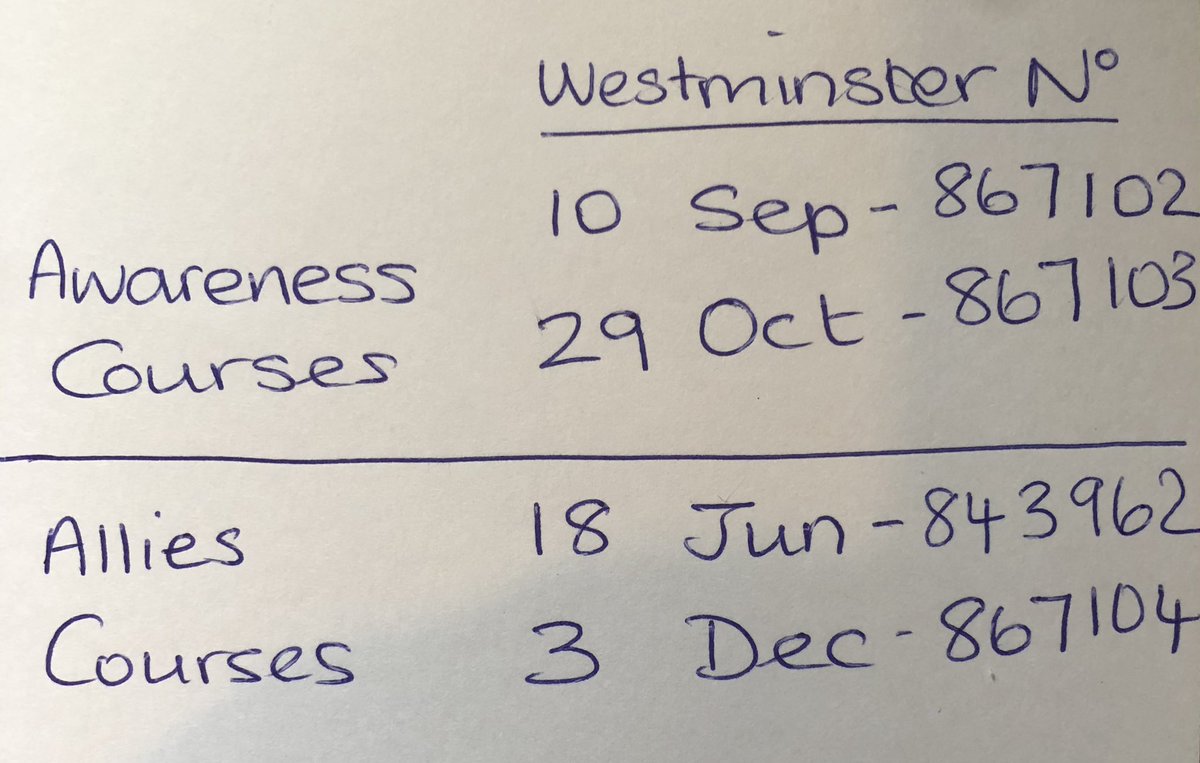 Westminster Nº
10 Sep - 867102
Awareness
29 Oct - 867103
Courses
Allies
18 Jun - 843962
Courses
3 Dec - 867104